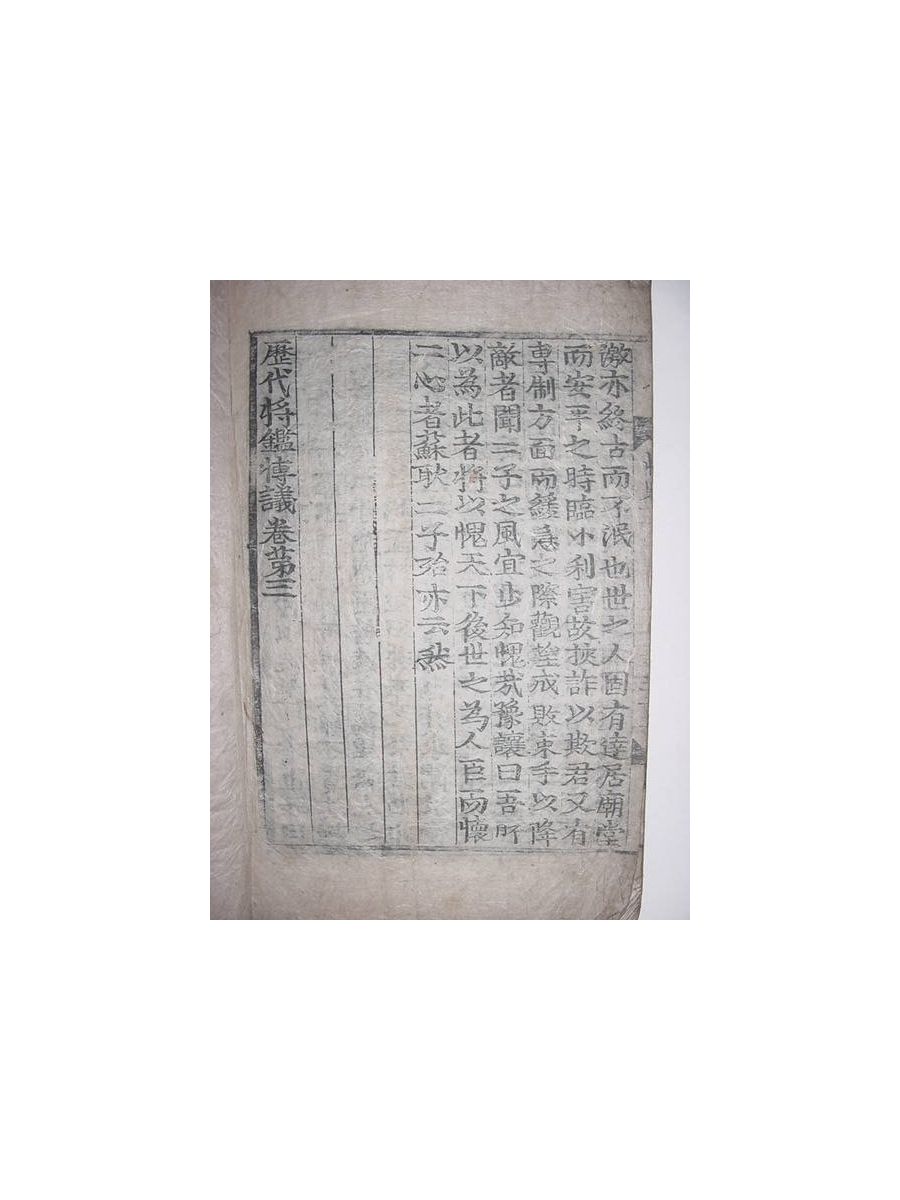 激亦終古而不泯也世之人固有達居廟堂
而安平之時臨小利害故挾詐以欺君又有
專制方面而緩急之際觀望戒敗束手以降
敵者聞二子之風宜少知愧哉豫讓曰吾所
以為此者將以愧天下後世之為人臣而懷
二心者蘇耿二子殆亦云然
歷代將鑑博議卷苐三